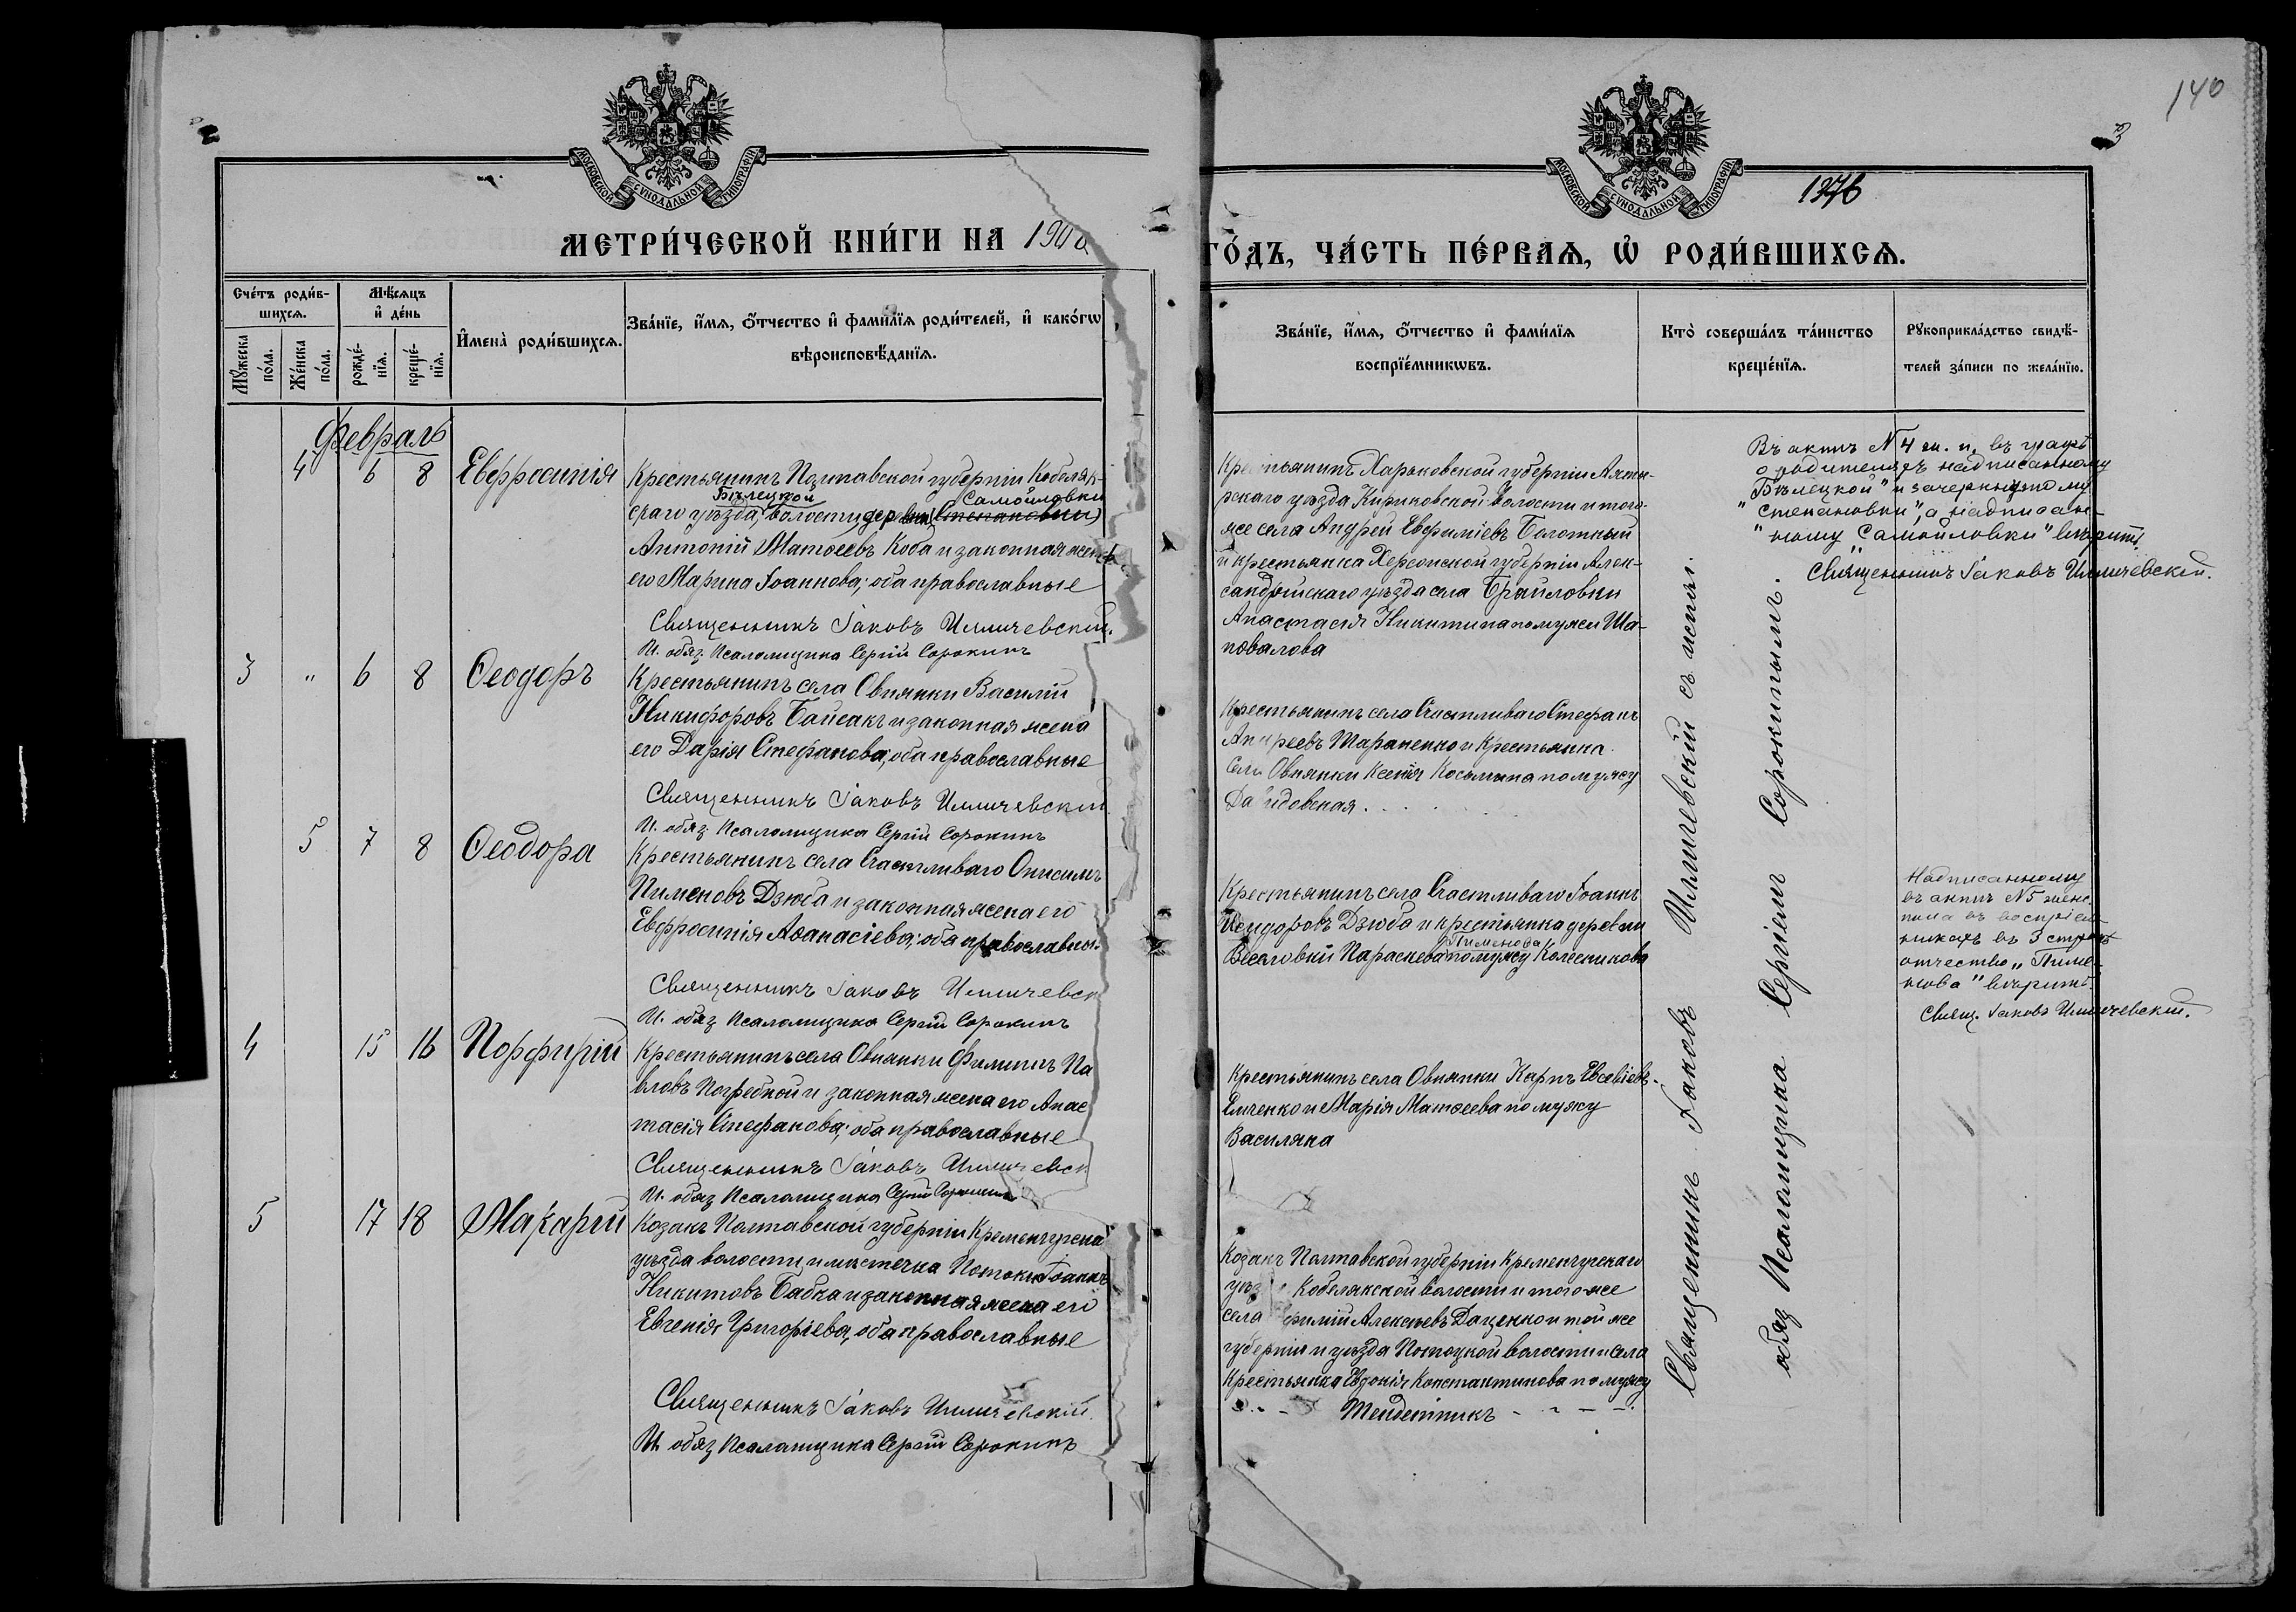 140
3
1376
МОСКОВСКОЙ СѴНОДАЛЬНОЙ ТИПОГРАФІИ
МОСКОВСКОЙ СѴНОДАЛЬНОЙ ТИПОГРАФІИ
МЕТРИ́ЧЕСКОЙ КНИ́ГИ НА 190
ГО́ДЪ, ЧА́СТЬ ПЕ́РВАѦ, Ѡ҆ РОДИ́ВШИХСѦ.
Сче́тъ роди́в-
шихсѧ.
Мѹ́жеска по́ла.
Же́нска по́ла.
Мѣ́сѧцъ
и҆ де́нь
рожде́-
нїѧ.
креще́-
нїѧ.
И҆мена̀ роди́вшихсѧ.
Зва́нїе, и҆́мѧ, ѻ҆́тчество и҆ фами́лїѧ роди́телей, и҆ како́гѡ
вѣроисповѣ́данїѧ.
Зва́нїе, и҆́мѧ, ѻ҆́тчество и҆ фами́лїѧ
воспрїе́мникѡвъ.
Кто̀ соверша́лъ та́инство
креще́нїѧ.
Рѹкоприкла́дство свидѣ́-
телей за́писи по жела́нїю.
Февраль
4 6 8 Евфросинія
Крестьянинъ Полтавской губерніи Кобеляк-
Бѣлецкой Самойловки
скаго уѣзда, волости деревни (Степановки)
Антоній Матѳеевъ Коба и законная жена
его Марина Іоаннова; оба православные
Священникъ Іаковъ Илличевскій.
И. обяз. Псаломщика Сергій Сорокинъ
Крестьянинъ Харьковской губерніи Ахты-
рскаго уѣзда Кириковской волости и того-
же села Андрей Евфиміевъ Болотный
и крестьянка Херсонской губерніи Алек-
сандрійскаго уѣзда села Браиловки
Анастасія Никитина по мужи Ша-
повалова
Въ актѣ N 4 ж. п. въ графѣ
о родителяхъ надписанному
"Бѣлецкой" и зачеркнутому
"Степановки", а надписан-
ному "Самойловки" вѣрить.
Священникъ Іаковъ Илличевскій.
3 " 6 8 Ѳеодоръ
Крестьянинъ села Овнянки Василій
Никифоровъ Байсакъ и законная жена
его Дарія Стефанова; оба православные
Священникъ Іаковъ Илличевскій
И. обяз. Псаломщика Сергій Сорокинъ
Крестьянинъ села Счастливаго Стефанъ
Андреевъ Тараненко и Крестьянка
Села Овнянки Ксенія Косьмина по мужу
Давидовская.
5 7 8 Ѳеодора
Крестьянинъ села Счастливаго Онисимъ
Пименовъ Дзюба и законная жена его
Евфросинія Аѳанасіева; оба православные
Священникъ Іаковъ Илличевск
И. обяз Псаломщика Сергій Сорокинъ
Крестьянинъ села Счастливаго Іоаннъ
Дзюба и крестьянка деревни
Пименова
Веселовки Параскева по мужу Колесникова
Надписанному
въ актѣ N 5 жен.
пола въ воспріем-
никахъ въ 3 строкѣ
отчество "Пиме-
нова" вѣрить.
Свящ. Іаковъ Илличевскій.
4 15 16 Порфирій
Крестьянинъ села Овнянки Филиппъ Па
вловъ Погребной и законная жена его Анас
тасія Стефанова; оба православные
Священникъ Іаковъ Илличевск
И. обяз Псаломщика Сергій Сорокинъ
Крестьянинъ села Овнянки Карпъ Евсевіевъ
Емченко и Марія Матѳеева по мужу
Василяка
5 17 18 Макарій
Козакъ Полтавской губерніи Кременчугска
уѣзда волости и мѣстечка Потоки Іоаннъ
Никитовъ Бабка и законная жена его
Евгенія Григоріева, оба православные
Священникъ Іаковъ Илличевскій.
И. обяз Псаломщика Сергій Сорокинъ
Козакъ Полтавской губерніи Кременчугскаго
уѣз Кобелякской волости и того же
села Алексѣевъ Даценко и той же
губерніи и уѣзда Потоцкой волости и села
Крестьянка Евдокія Константинова по мужу
Священникъ Іаковъ Илличевскій съ испр.
обяз Псаломщика Сергіемъ Сорокинымъ.